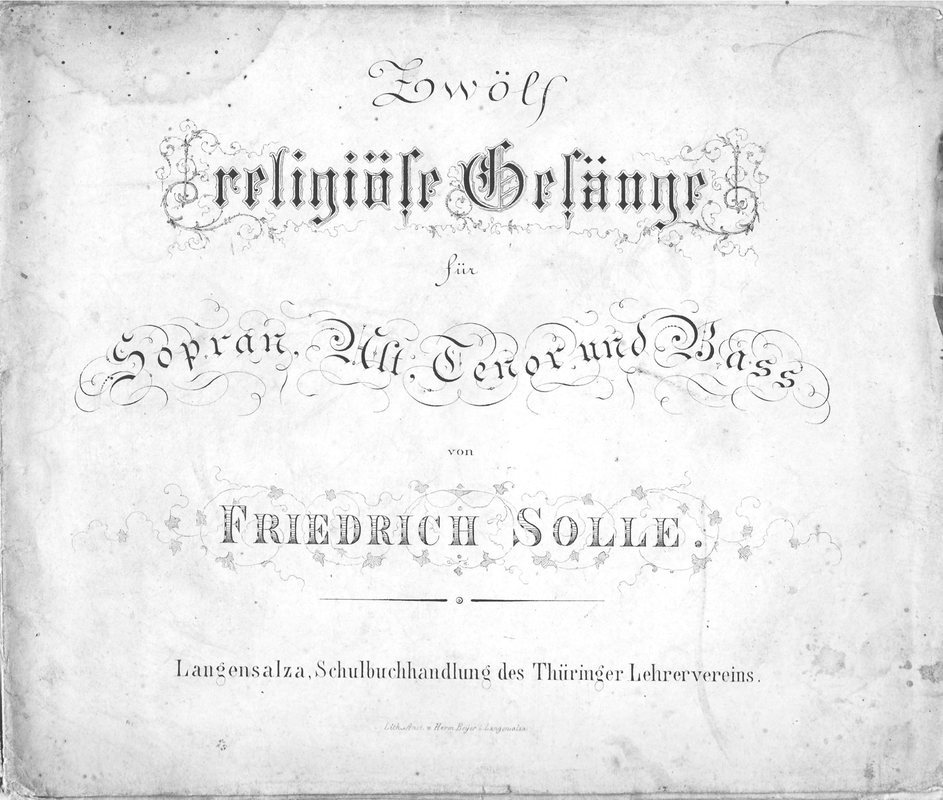 Zwölf
religiöſe Geſänge
für
Sopran, Alt, Tenor und Bass
von
FRIEDRICH SOLLE.
Langensalza, Schulbuchhandlung des Thüringer Lehrervereins.
Lith. Anst. v. Herm. Beyer i. Langensalza.